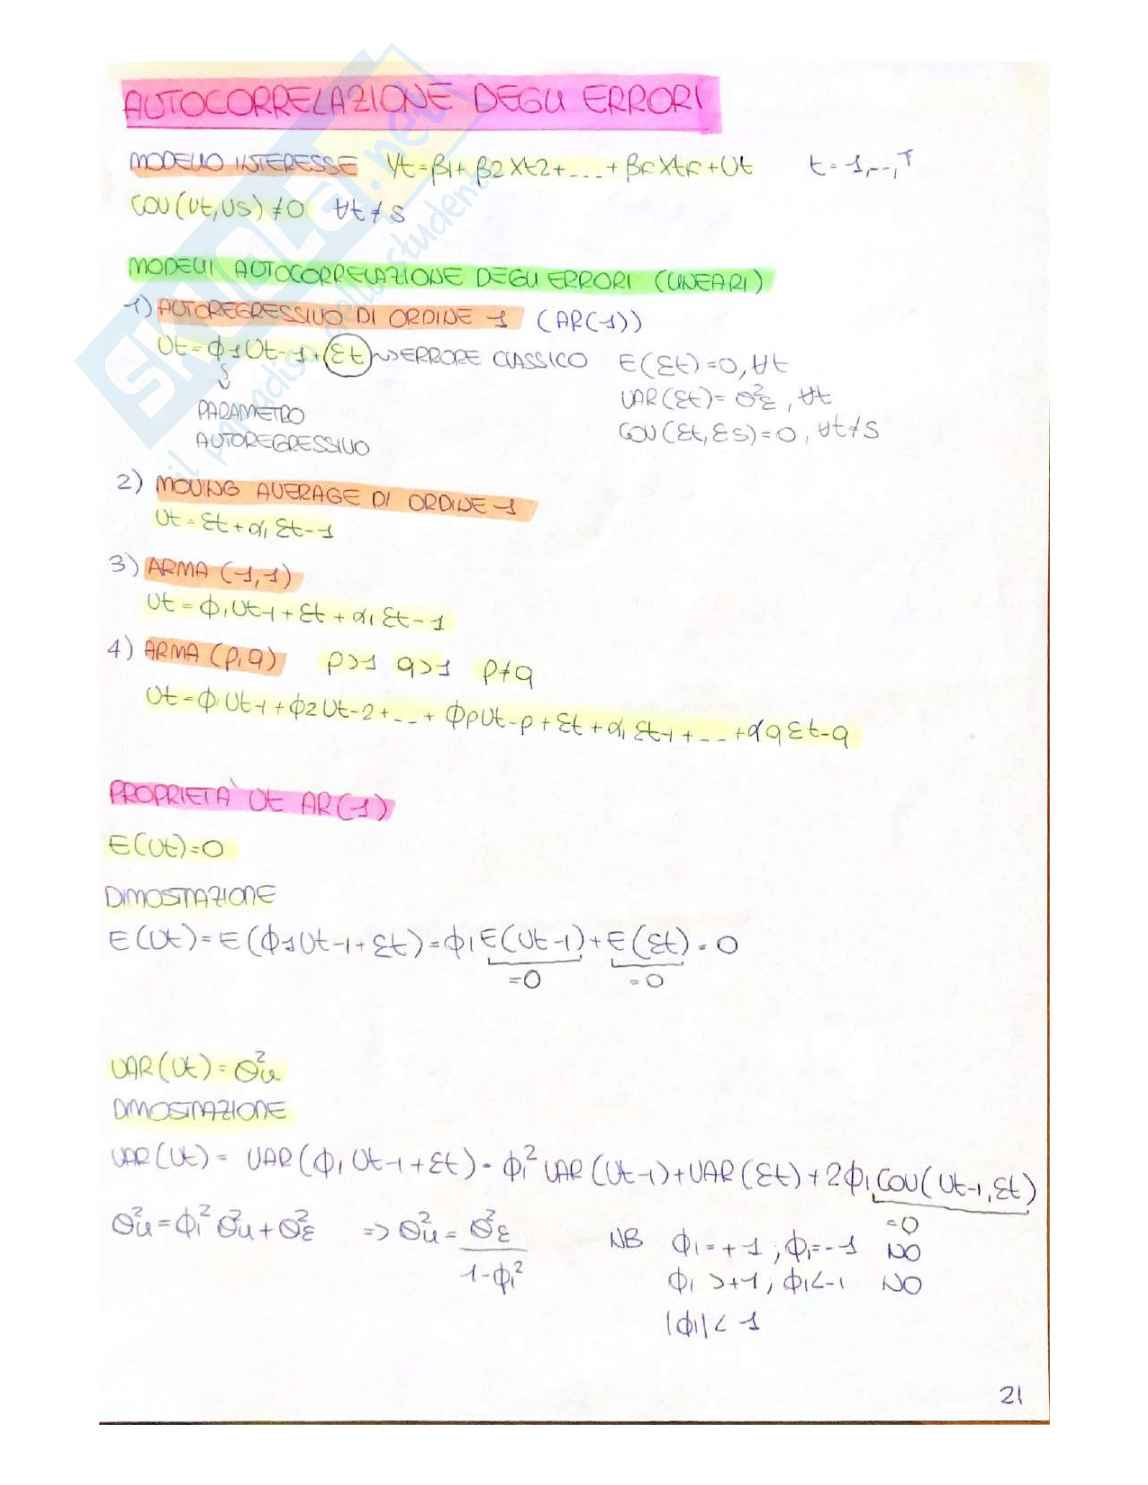 AUTOCORRELAZIONE DEGLI ERRORI
MODELLO INTERESSE Yt=β1+β2Xt2+...+βkXtk+Ut t=1,..,T
COV(Ut,Us)≠0 ∀t≠s
MODELLI AUTOCORRELAZIONE DEGLI ERRORI (LINEARI)
1) AUTOREGRESSIVO DI ORDINE 1 (AR(1))
Ut=ϕ1Ut-1+εt ~> ERRORE CLASSICO E(εt)=0,∀t
PARAMETRO VAR(εt)=σ²ε,∀t
AUTOREGRESSIVO COV(εt,εs)=0,∀t≠s
2) MOVING AVERAGE DI ORDINE 1
Ut=εt+α1εt-1
3) ARMA (1,1)
Ut=ϕ1Ut-1+εt+α1εt-1
4) ARMA (p,q) p>1 q>1 p≠q
Ut=ϕ1Ut-1+ϕ2Ut-2+...+ϕpUt-p+εt+α1εt-1+...+αqεt-q
PROPRIETÀ Ut AR(1)
E(Ut)=0
DIMOSTAZIONE
E(Ut)=E(ϕ1Ut-1+εt)=ϕ1E(Ut-1)+E(εt)=0
=0 =0
VAR(Ut)=σ²u
DIMOSTAZIONE
VAR(Ut)=VAR(ϕ1Ut-1+εt)=ϕ1²VAR(Ut-1)+VAR(εt)+2ϕ1COV(Ut-1,εt)
=0
σ²u=ϕ1²σ²u+σ²ε => σ²u=σ²ε/1-ϕ1² NB ϕ1=+1;ϕ1=-1 NO
ϕ1>+1;ϕ1<-1 NO
|ϕ1|<1
21
SKUOLA.net
il paradiso dello studente